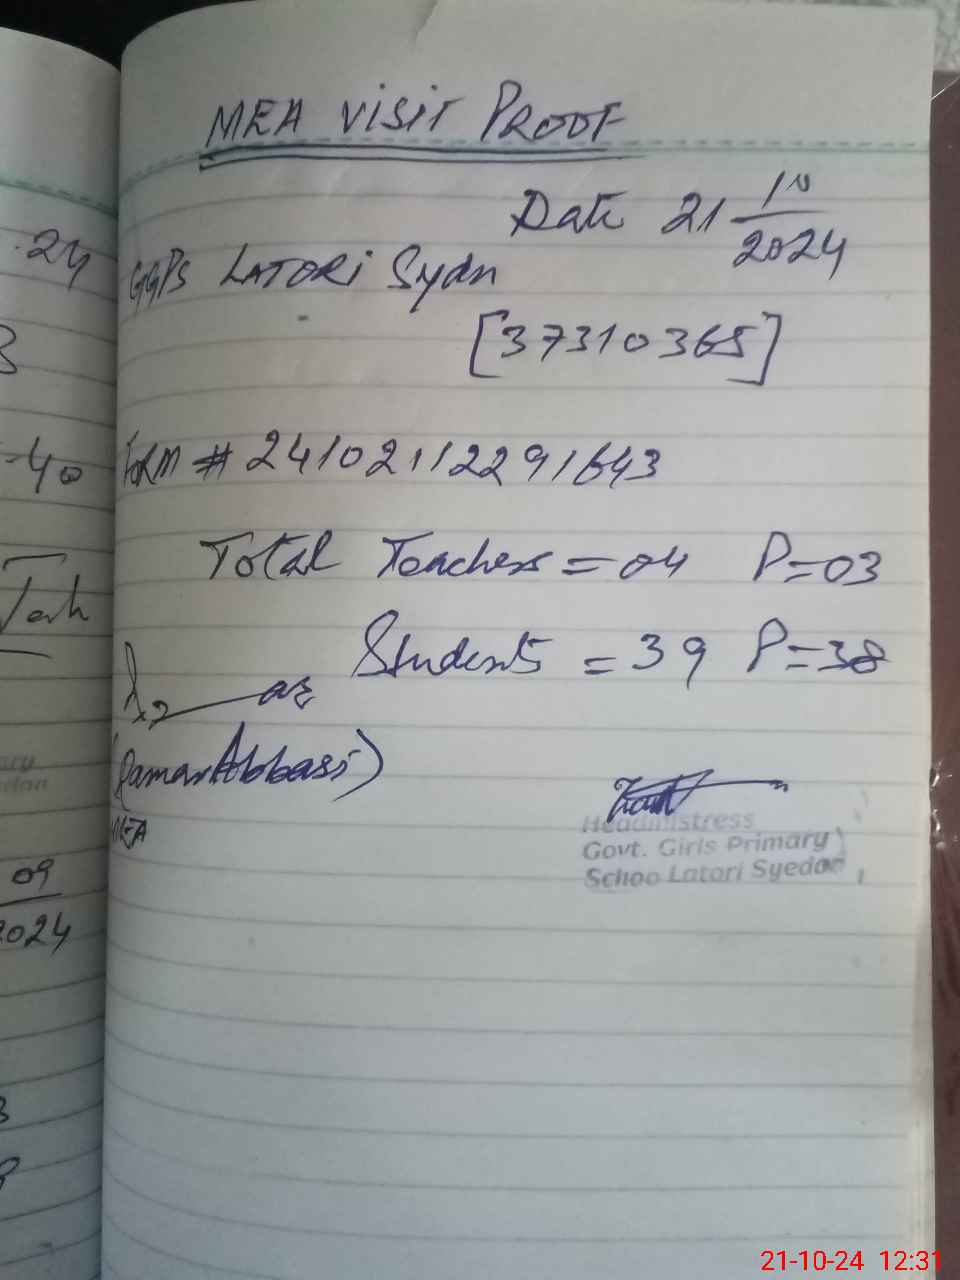 .24
3
-40
Teh
09
2024
3
MEA VISIT PROOF
Date 21 10
2024
GGPS LATORI Sydn
[37310365]
Form # 24102112291643
Total Teachers = 04 P=03
Students = 39 P=38
(Qamar Abbasi)
MEA
Headmistress
Govt. Girls Primary
Schoo Latori Syedan
21-10-24 12:31